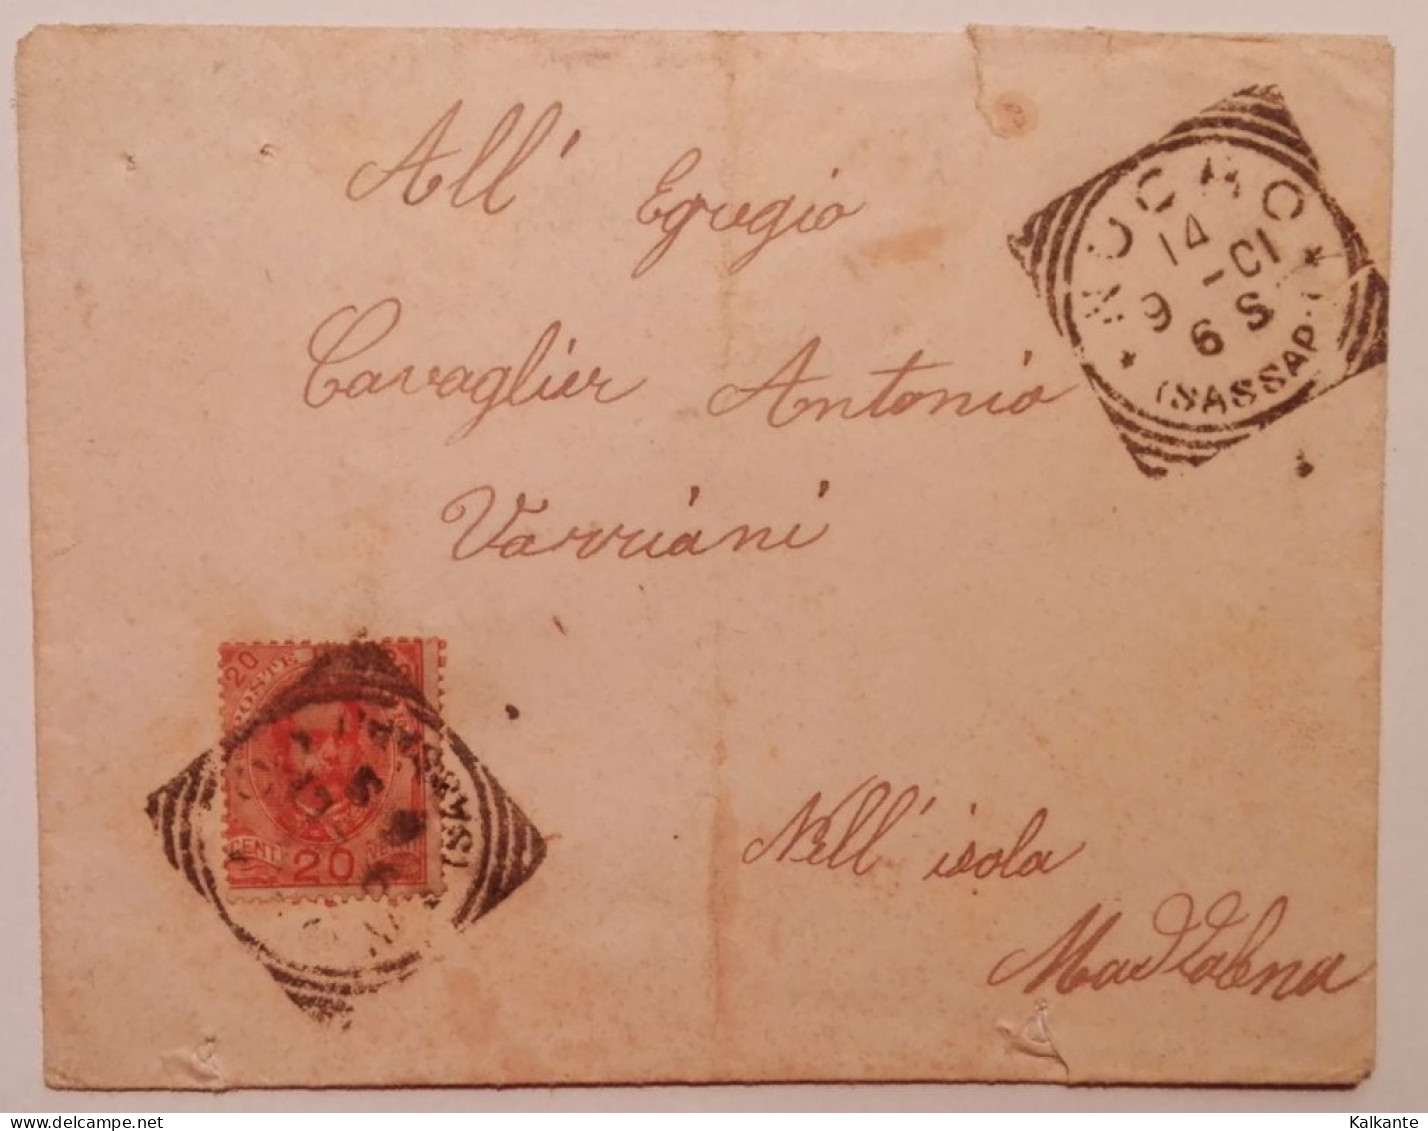 All' Egregio
Cavaglier Antonio
Varriani
Nell' isola
Maddalena
14
9 - 01
6 S
(SASSARI)
20
POSTE
20
(SASSARI)
delcampe.net
Kalkante